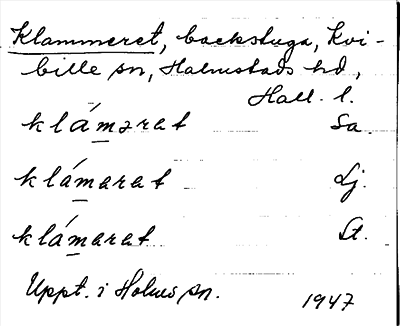 Klammeret, backstuga, Kvi-
bille sn, Halmstads hd,
Hall. l.
klámərat Sa.
klámarat Lj.
klámarat St.
Uppt. i Holms sn. 1947